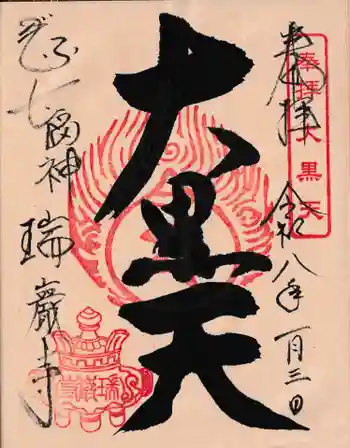 奉拝 令和八年一月三日
奉拝大黒天
大黒天
ぎふ七福神 瑞巌寺